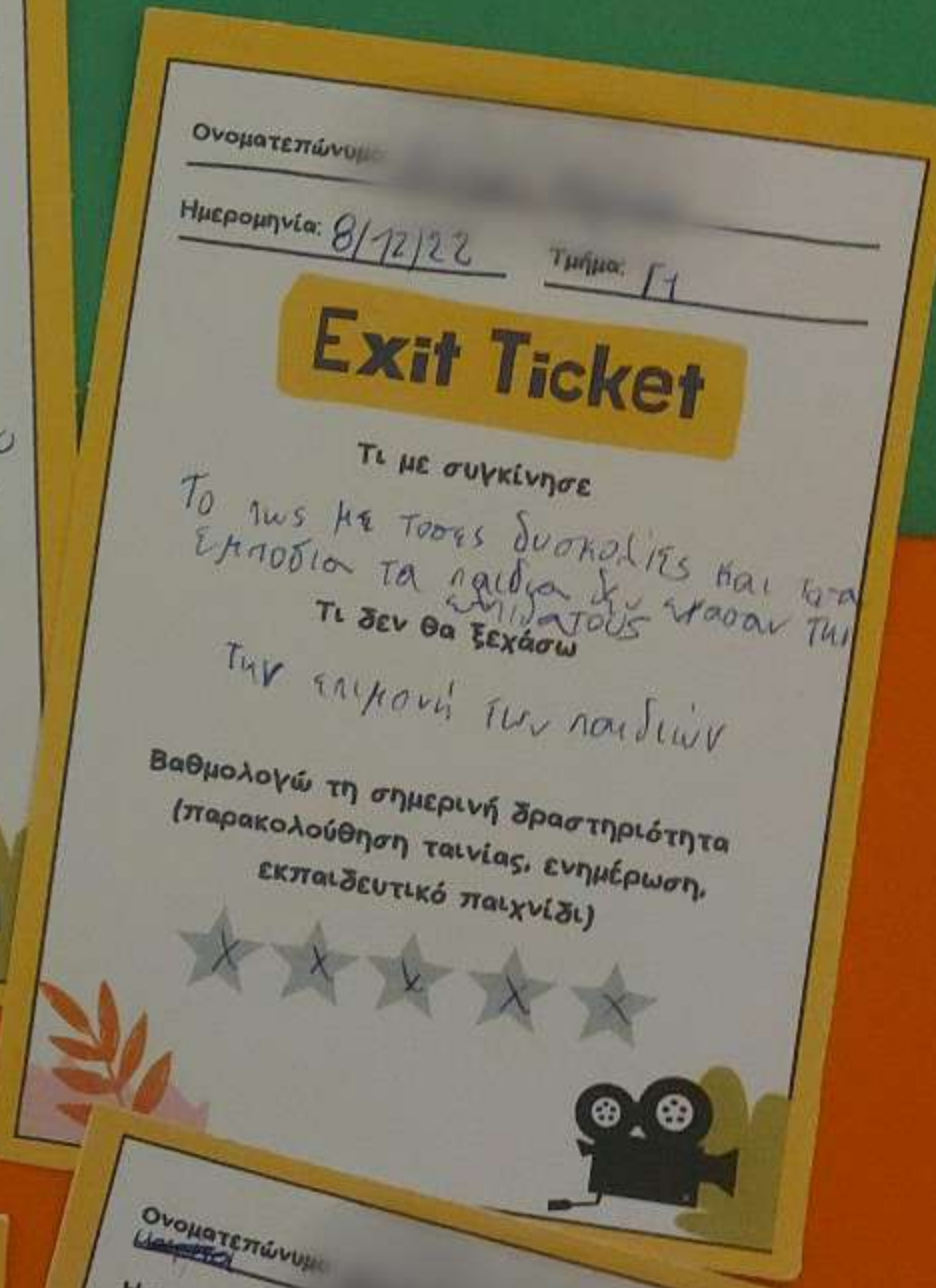 Ονοματεπώνυμο
Ημερομηνία: 8/12/22 Τμήμα: Γ1
Exit Ticket
Τι με συγκίνησε
Το πως με τοσες δυσκολίες και τοσα
εμποδια τα παιδια δεν εχασαν την
ελπιδα τους
Τι δεν θα ξεχάσω
Την επιμονή των παιδιών
Βαθμολογώ τη σημερινή δραστηριότητα
(παρακολούθηση ταινίας, ενημέρωση,
εκπαιδευτικό παιχνίδι)
Ονοματεπώνυμο